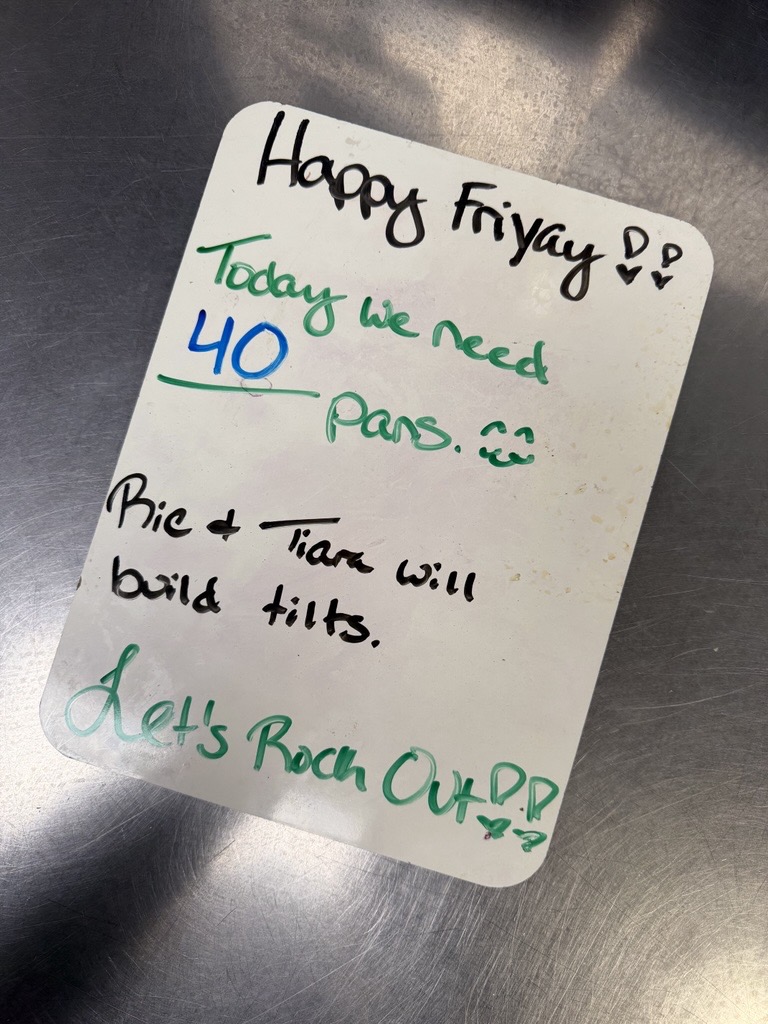 Happy Friyay !!
Today we need
40
pans.
Ric & Tiara will
build tilts.
Let's Rock Out!!